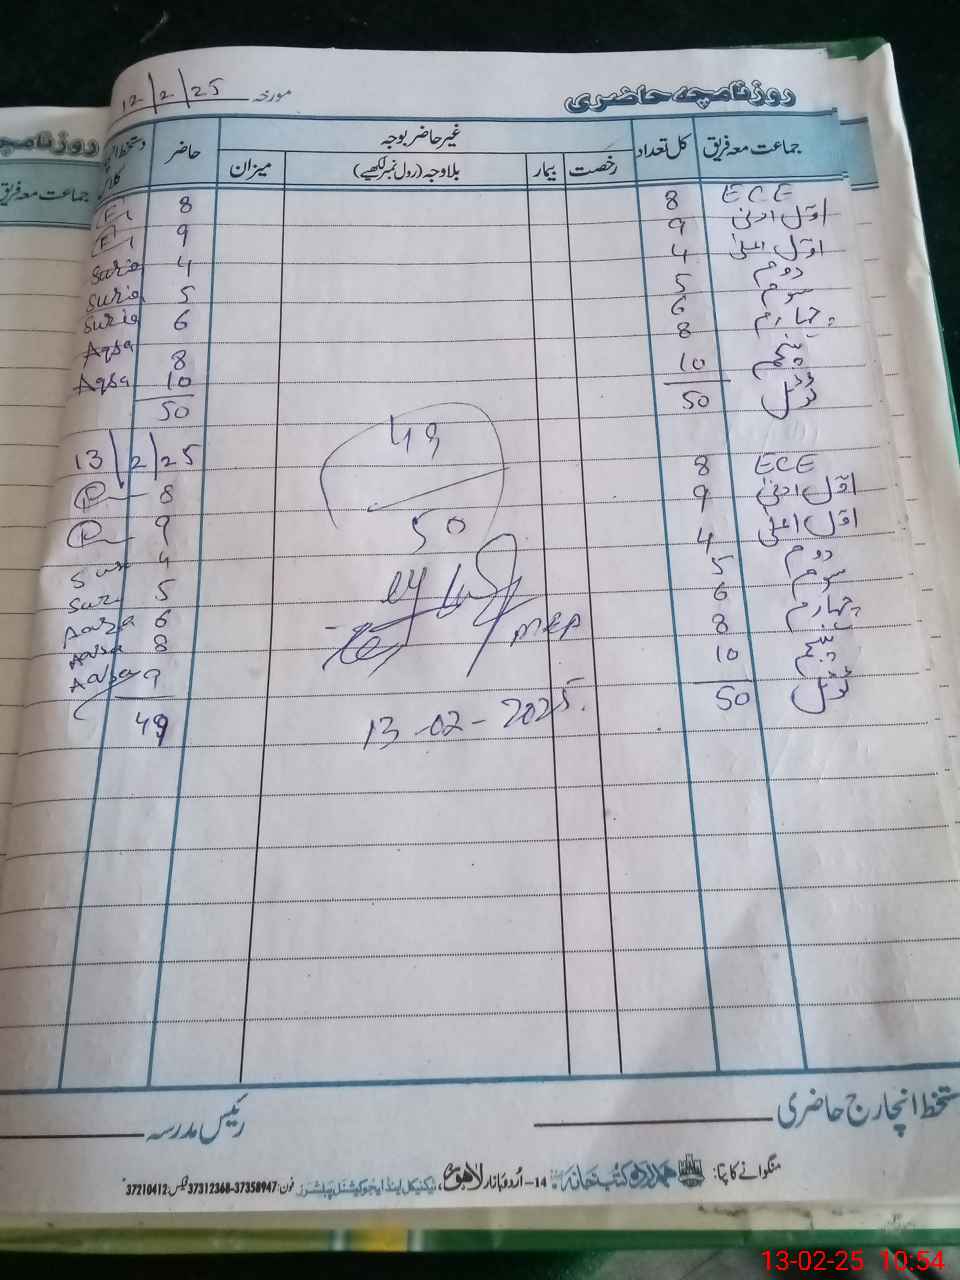 روزنامچہ حاضری
مورخہ 12/2/25
جماعت معہ فریق کل تعداد غیر حاضر بوجہ حاضر
رخصت بیمار بلاوجہ (رول نمبر لکھیے) میزان
ECE 8 8
اوّل ادنیٰ 9 9
اوّل اعلیٰ 4 4 Suria
دوم 5 5 Suria
سوم 6 6 Suria
چہارم 8 8 Aqsa
پنجم 10 10 Aqsa
ٹوٹل 50 50
13/2/25
49
50
ECE 8 8
اوّل ادنیٰ 9 9
اوّل اعلیٰ 4 4
دوم 5 5
سوم 6 6
چہارم 8 8
پنجم 10 9
ٹوٹل 50 49
13-02-2025.
دستخط انچارج حاضری
رئیس مدرسہ
منگوانے کا پتا: ہمدرد کتب خانہ 14-اُردو بازار لاہور، ٹیکنیکل اینڈ ایجوکیشنل پبلشرز فون: 37358947-37312368 فیکس: 37210412
روزنامچہ
جماعت معہ فریق
13-02-25 10:54